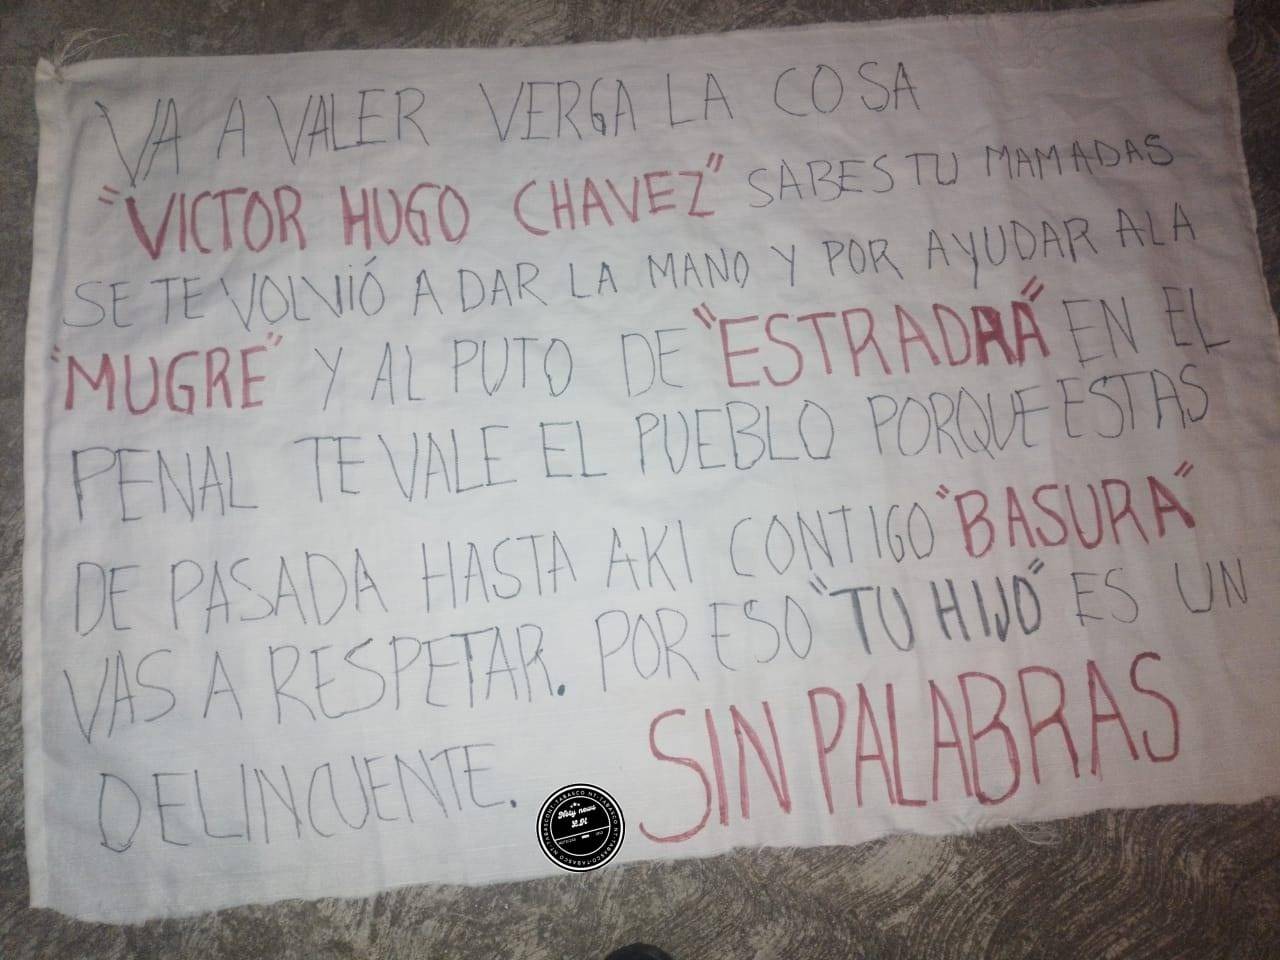 VA A VALER VERGA LA COSA
"VICTOR HUGO CHAVEZ" SABES TU MAMADAS
SE TE VOLVIÓ A DAR LA MANO Y POR AYUDAR ALA
"MUGRE" Y AL PUTO DE "ESTRADAA" EN EL
PENAL TE VALE EL PUEBLO PORQUE ESTAS
DE PASADA HASTA AKI CONTIGO "BASURA"
VAS A RESPETAR. POR ESO "TU HIJO" ES UN
DELINCUENTE. SIN PALABRAS
Noty news